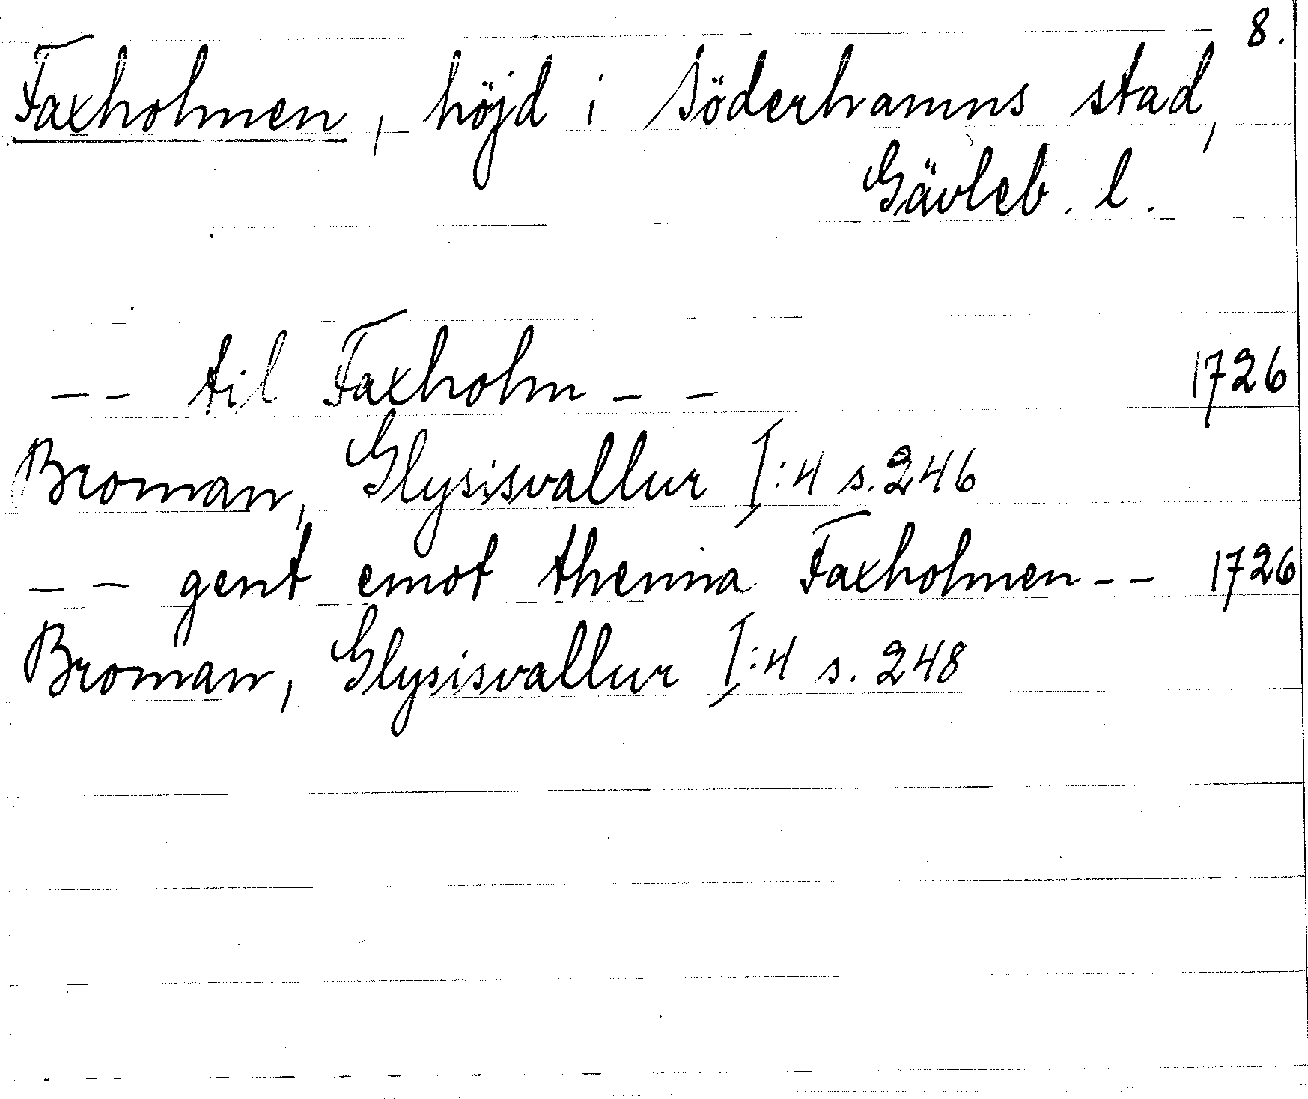 8.
Faxholmen, höjd i Söderhamns stad,
Gävleb. l.
-- til Faxholm -- 1726
Broman, Glysisvallur I:4 s. 246
-- gent emot thenna Faxholmen -- 1726
Broman, Glysisvallur I:4 s. 248